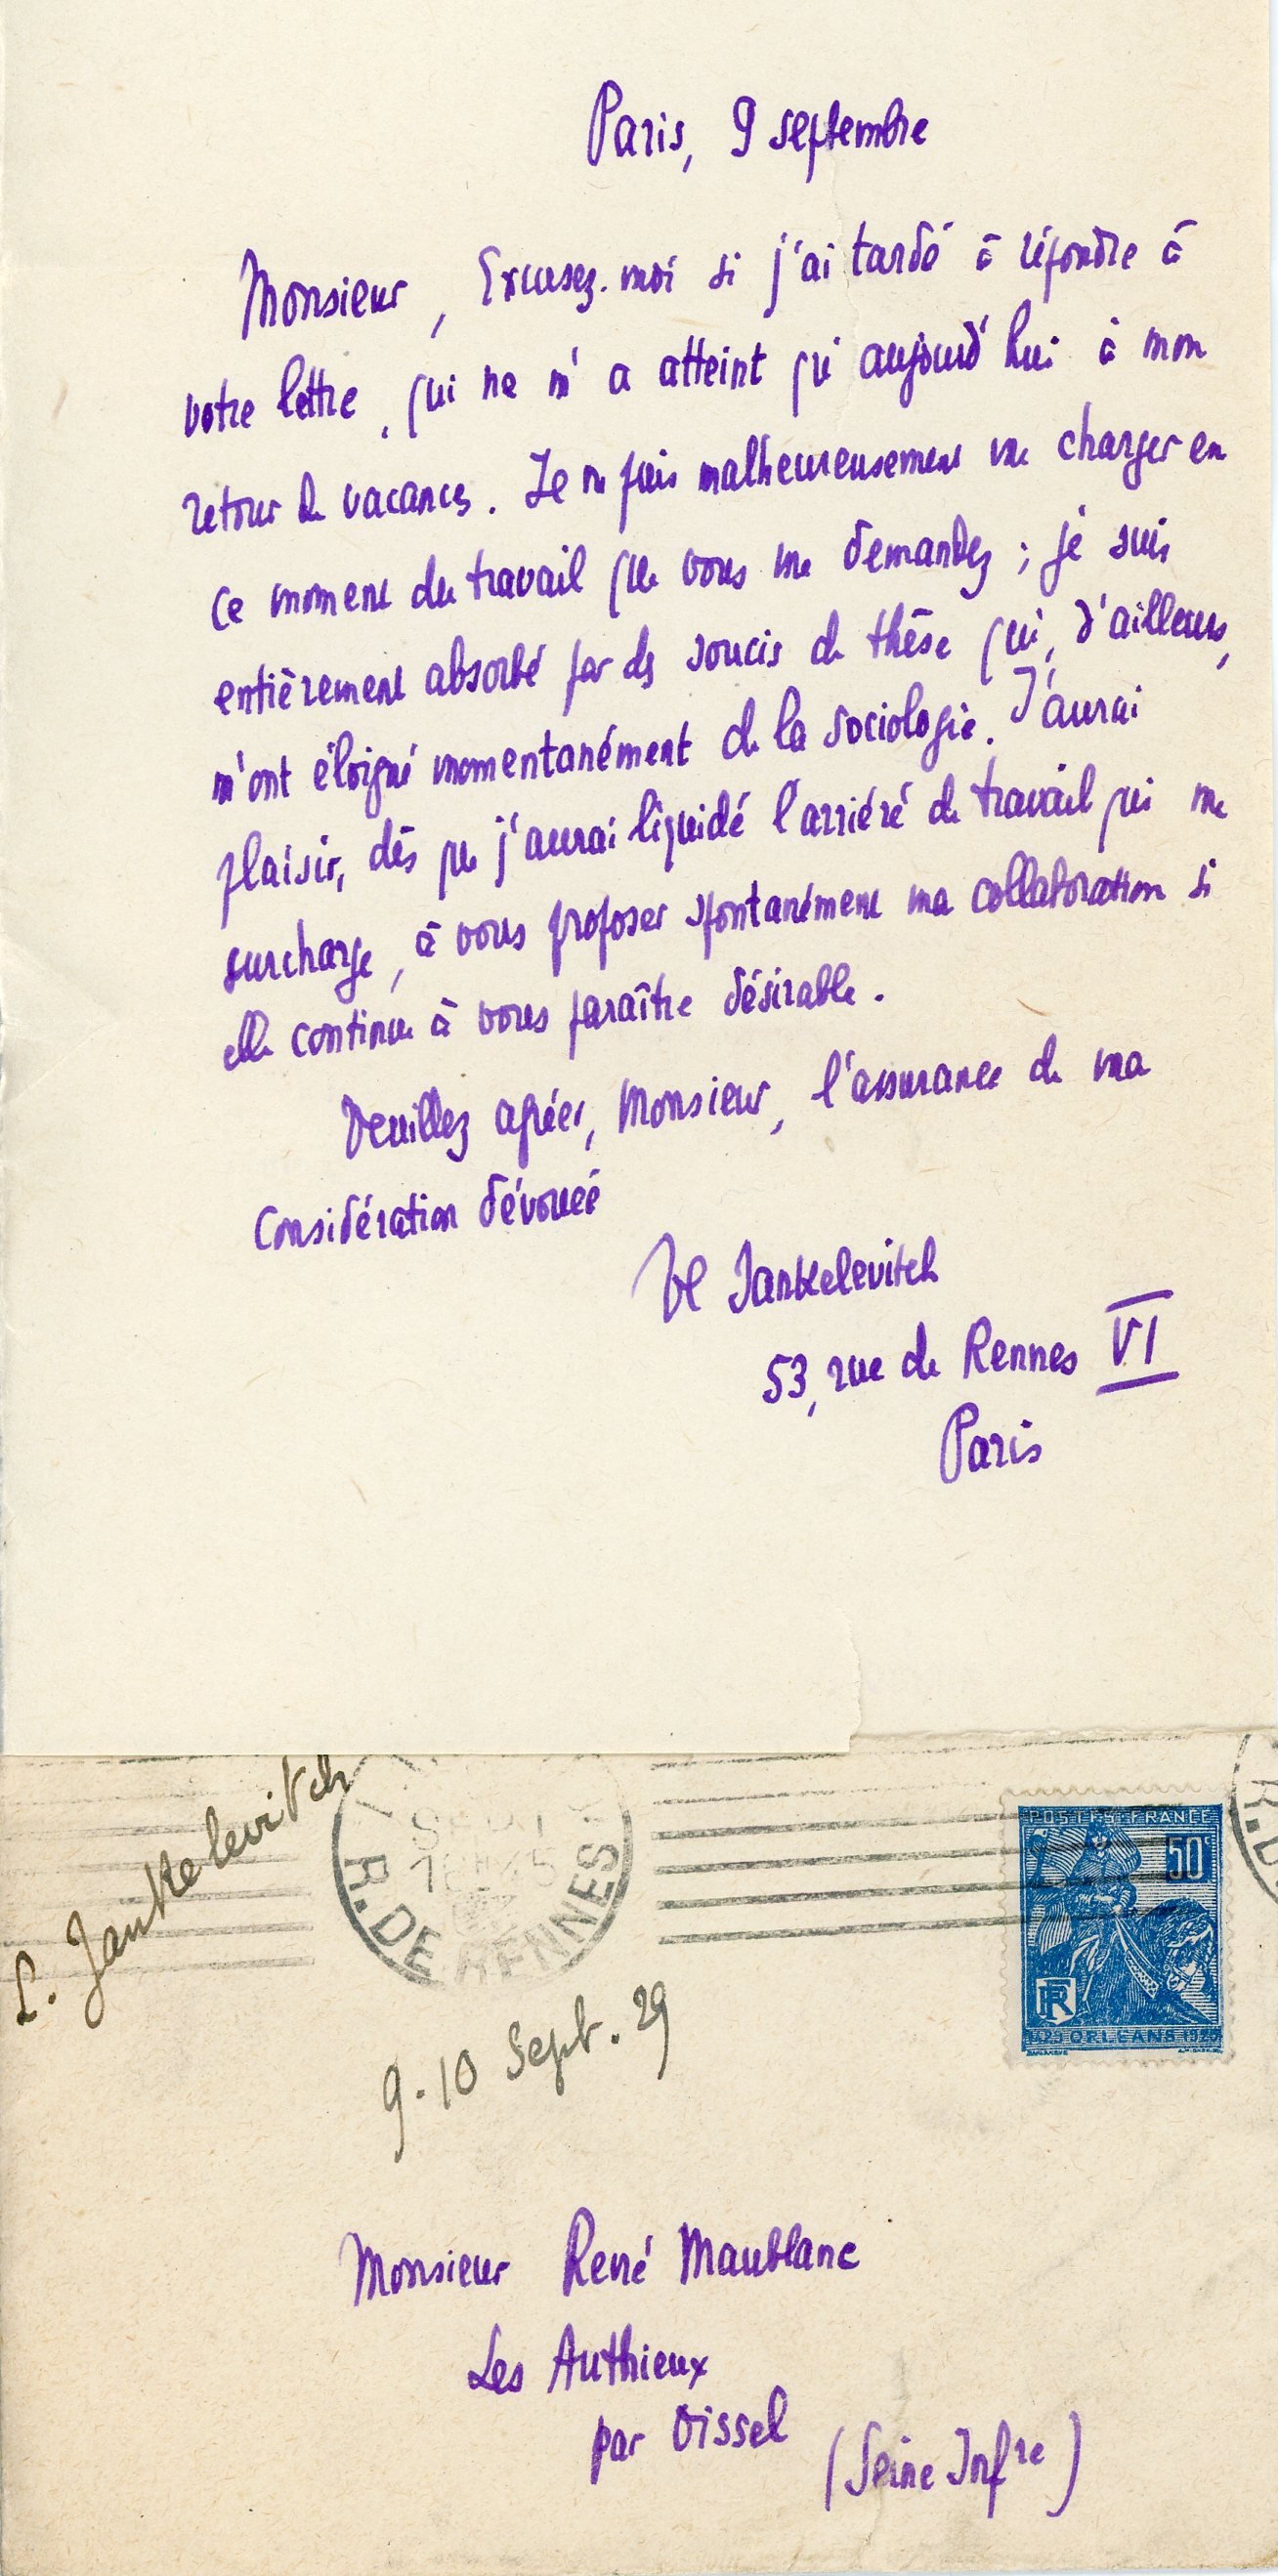 Paris, 9 septembre
Monsieur, Excusez-moi si j'ai tardé à répondre à
votre lettre, qui ne m'a atteint qu'aujourd'hui à mon
retour de vacances. Je ne puis malheureusement me charger en
ce moment du travail que vous me demandez ; je suis
entièrement absorbé par des soucis de thèse qui, d'ailleurs,
m'ont éloigné momentanément de la sociologie. J'aurai
plaisir, dès que j'aurai liquidé l'arriéré de travail qui me
surcharge, à vous proposer spontanément ma collaboration si
elle continue à vous paraître désirable.
Veuillez agréer, Monsieur, l'assurance de ma
considération dévouée
Vl Jankelevitch
53, rue de Rennes VI
Paris
L. Jankelevitch
R. DE RENNES
POSTES FRANCE
50c
RF
1429 ORLEANS 1929
9-10 Sept. 29
Monsieur René Maublanc
Les Authieux
par Oissel
(Seine Infre)